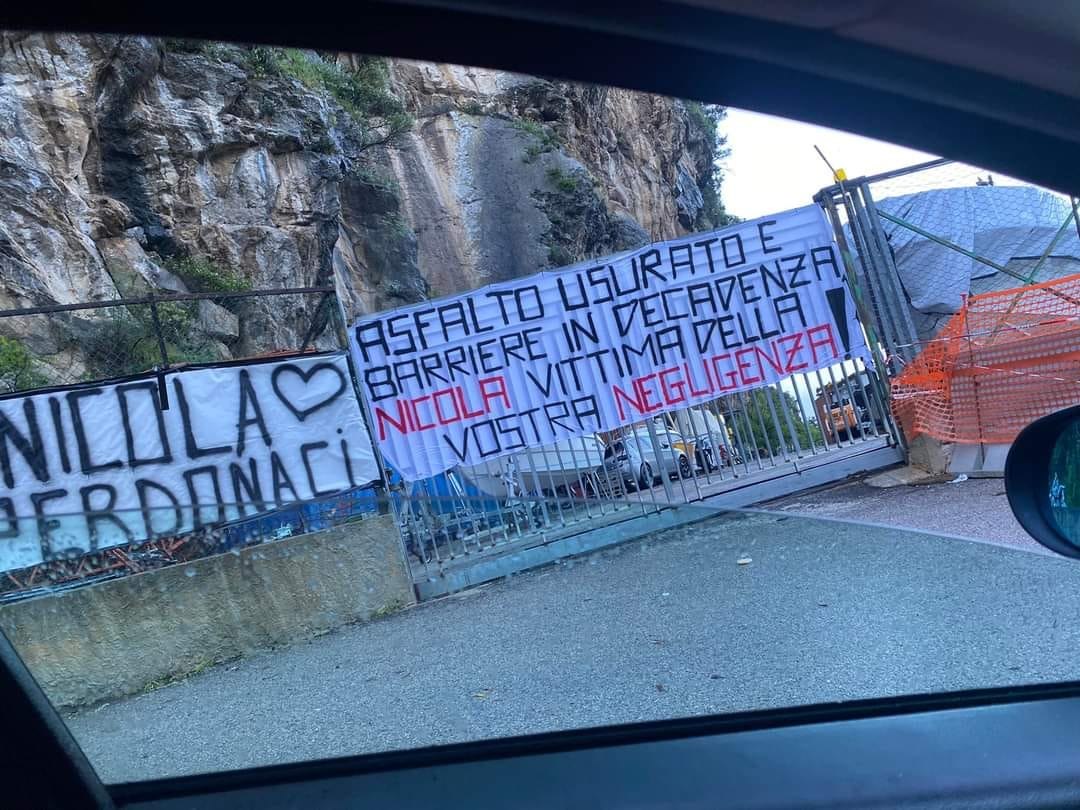 NICOLA
PERDONACI
ASFALTO USURATO E
BARRIERE IN DECADENZA,
NICOLA VITTIMA DELLA
VOSTRA NEGLIGENZA!